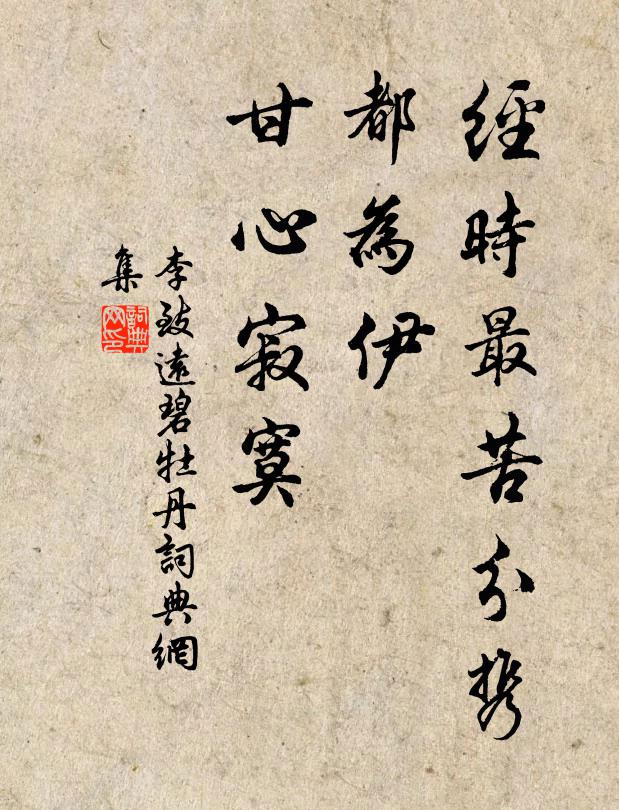 經時最苦分携
都為伊
甘心寂寞
李致遠碧牡丹詞典網
集
詞典
网印